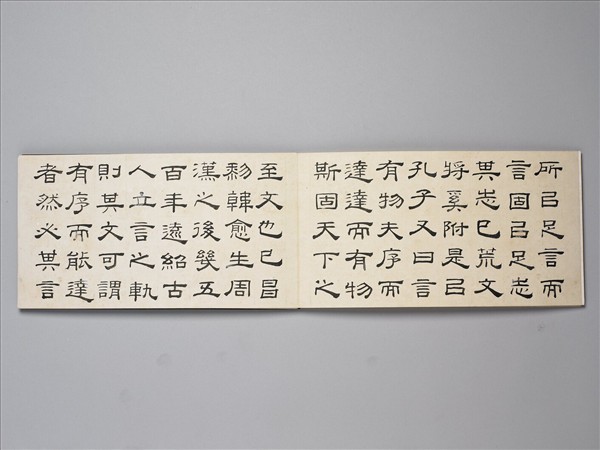 所㠯足言而
言固㠯足志
其志已荒文
將奚附是㠯
孔子又曰言
有物夫序而
達達而有物
斯固天下之
至文也已昌
黎韓愈生周
漢之後幾五
百年遠紹古
人立言之軌
則其文可謂
有序而能達
者然必其言